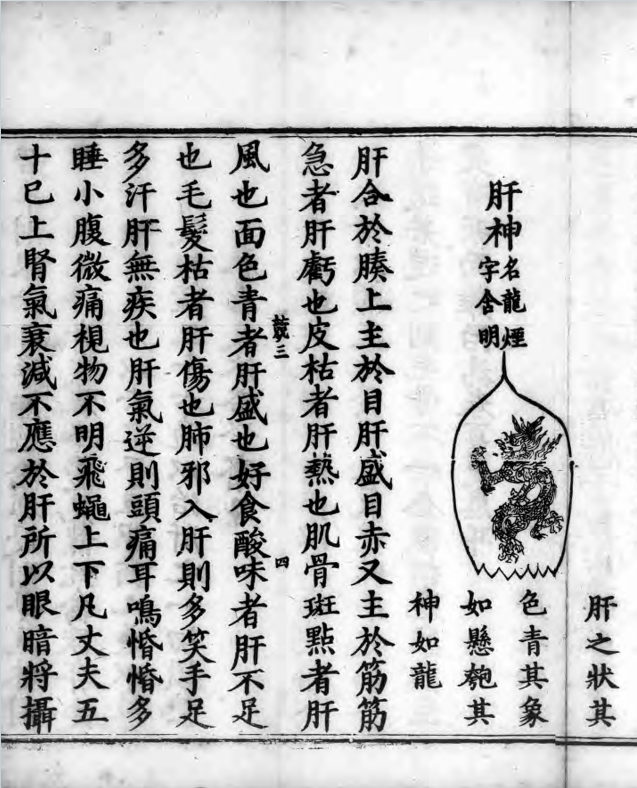 肝神名龍煙
字含明
肝之狀其
色青其象
如懸匏其
神如龍
肝合於腠上主於目肝盛目赤又主於筋筋
急者肝虧也皮枯者肝熱也肌骨斑點者肝
三
四
風也面色青者肝盛也好食酸味者肝不足
也毛髮枯者肝傷也肺邪入肝則多笑手足
多汗肝無疾也肝氣逆則頭痛耳鳴惛惛多
睡小腹微痛視物不明飛蠅上下凡丈夫五
十已上腎氣衰減不應於肝所以眼暗將攝